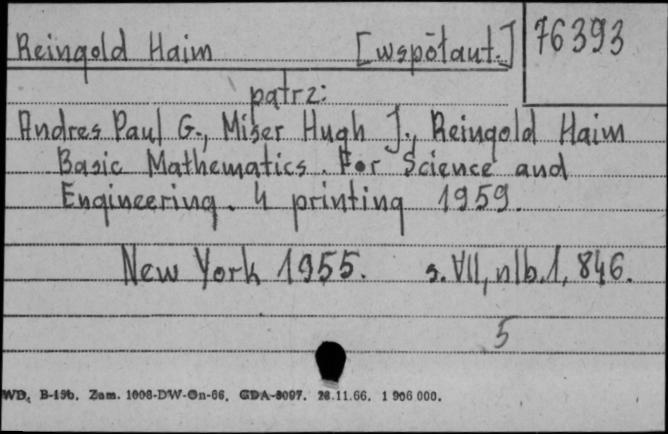 Reingold Haim [współaut.] 76393
patrz:
Andres Paul G., Miser Hugh J., Reingold Haim
Basic Mathematics. For Science and
Engineering. 4 printing 1959.
New York 1955. s. VII, nlb. 1, 846.
5
WD. B-15b. Zam. 1008-DW-On-66. GDA-8097. 28.11.66. 1 906 000.